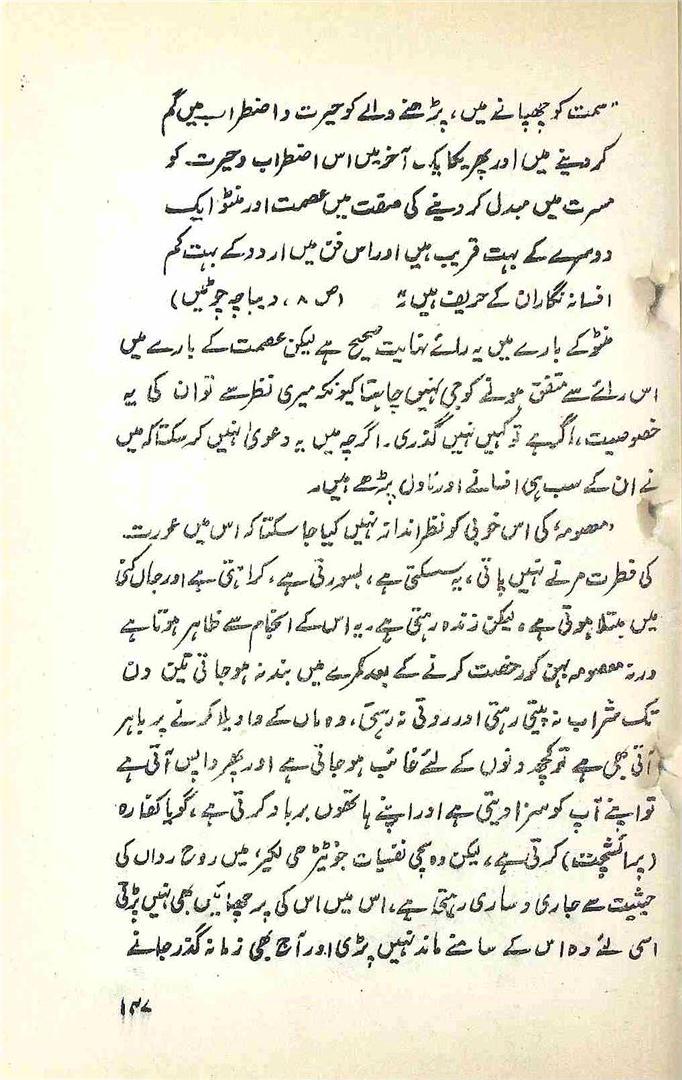 "سمت کو چھپانے میں، پڑھنے والے کو حیرت و اضطراب میں گم
کر دینے میں اور پھر یکایک آخر میں اس اضطراب و حیرت کو
مسرت میں مبدل کر دینے کی صفت میں عصمت اور منٹو ایک
دوسرے کے بہت قریب ہیں اور اس فن میں اردو کے بہت کم
افسانہ نگاران کے حریف ہیں" (ص ۸، دیباچہ چوٹیں)
منٹو کے بارے میں یہ رائے نہایت صحیح ہے لیکن عصمت کے بارے میں
اس رائے سے متفق ہونے کو جی نہیں چاہتا کیونکہ میری نظر سے تو ان کی یہ
خصوصیت، اگر ہے تو کہیں نہیں گذری۔ اگرچہ میں یہ دعویٰ نہیں کر سکتا کہ میں
نے ان کے سب ہی افسانے اور ناول پڑھے ہیں۔
'معصومہ' کی اس خوبی کو نظر انداز نہیں کیا جا سکتا کہ اس میں عورت
کی فطرت مرنے نہیں پاتی، یہ سسکتی ہے، بسورتی ہے، کراہتی ہے اور جاں کنی
میں مبتلا ہوتی ہے، لیکن زندہ رہتی ہے۔ یہ اس کے انجام سے ظاہر ہوتا ہے
ورنہ معصومہ بہن کو رخصت کرنے کے بعد کمرے میں بند نہ ہو جاتی تین دن
تک شراب نہ پیتی رہتی اور روتی نہ رہتی، وہ ماں کے واویلا کرنے پر باہر
آتی بھی ہے تو کچھ دنوں کے لئے غائب ہو جاتی ہے اور پھر واپس آتی ہے
تو اپنے آپ کو سزا دیتی ہے اور اپنے ہاتھوں برباد کرتی ہے، گویا کفارہ
(پرائشچت) کرتی ہے، لیکن وہ سچی نفسیات جو 'ٹیڑھی لکیر' میں روح رواں کی
حیثیت سے جاری و ساری رہتی ہے، اس میں اس کی پرچھائیں بھی نہیں پڑتی
اسی لئے وہ اس کے سامنے ماند نہیں پڑی اور آج بھی زمانہ گذر جانے
۱۳۷